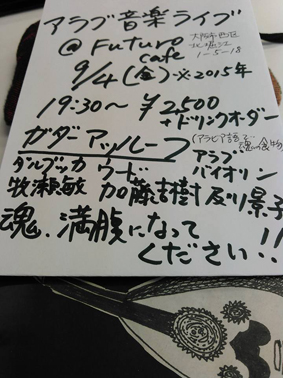 アラブ音楽ライブ
@ Futuro cafe
大阪市西区
北堀江
1-5-18
9/4(金)※2015年
19:30～ ¥2500
+ドリンクオーダー
ガダーアッルーフ
(アラビア語で
魂の食物)
ダルブッカ ウード アラブバイオリン
牧瀬敏 加藤吉樹 及川景子
魂、満腹になって
ください!!